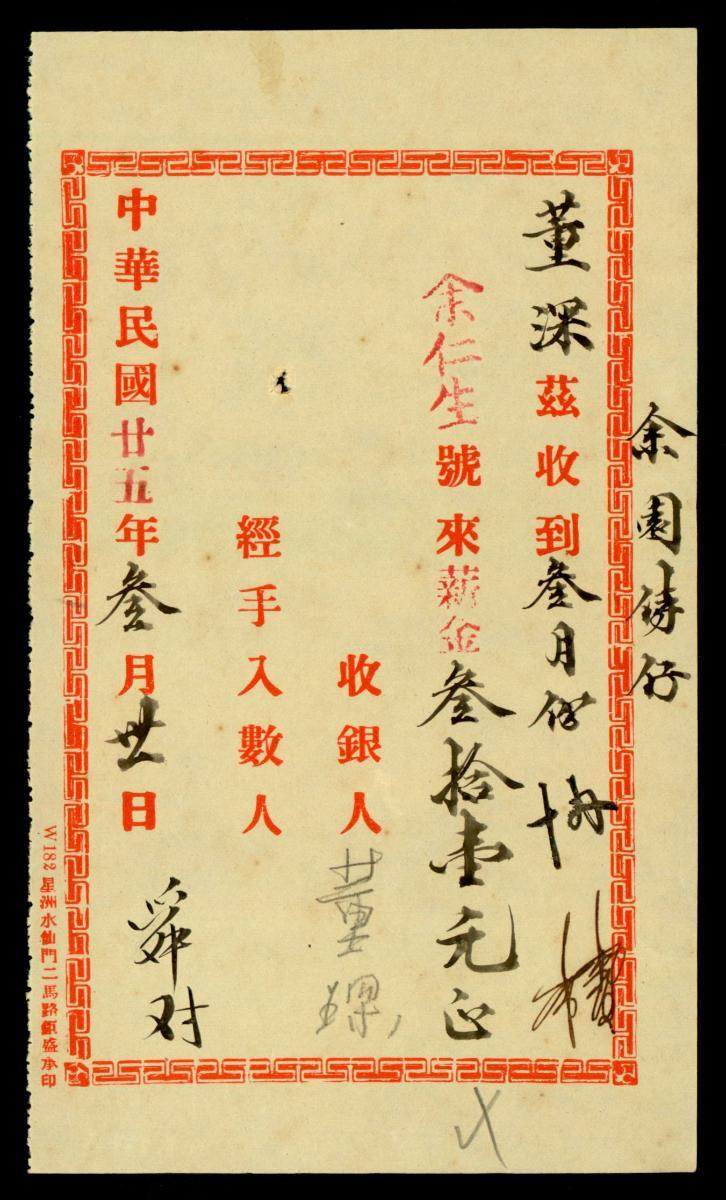 余園儔仔
董深茲收到叁月份
余仁生號來薪金叁拾壹元正
收銀人董
經手入數人
中華民國廿五年叁月卅日
舜对
W182 星洲水仙門二馬路銀盛承印